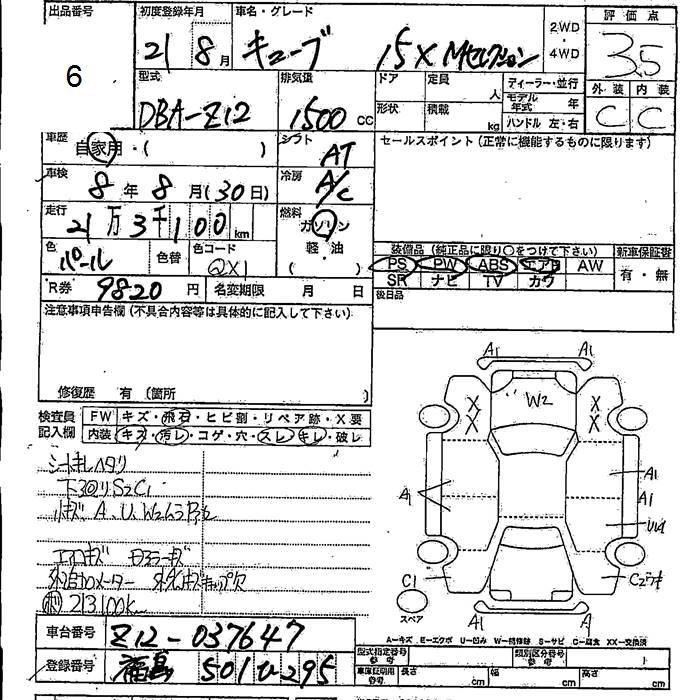 出品番号 初度登録年月 車名・グレード 2WD・4WD 評価点
6 21 8月 キューブ 15X Mセレクション 3.5
型式 排気量 ドア 定員 人 ディーラー・並行 外装 内装
DBA-Z12 1500 CC 形状 積載 kg モデル年式 年 ハンドル 左・右 C C
車歴 自家用・( ) シフト AT セールスポイント(正常に機能するものに限ります)
車検 8年 8月(30日) 冷房 A/C
走行 21万3千100km 燃料 ガソリン
軽・油
( )
色 パール 色替 色コード QX1 装備品(純正品に限り○をつけて下さい) 新車保証書
PS PW ABS エアB AW 有・無
R券 9820円 名変期限 月 日 SR ナビ TV カワ
後日品
注意事項申告欄(不具合内容等は具体的に記入して下さい)
修復歴 有 (箇所 )
検査員記入欄 FW キズ・飛石・ヒビ割・リペア跡・X要
内装 キズ・汚レ・コゲ・穴・スレ・キレ・破レ
シートキレヘタリ
下回りS2C1
小キズ A、U、W2
エアロキズ
213100K
A1 A1
W2
X X
X X
A1 A1
A1
C1 スペア
A1 A
A-キズ E-エクボ U-凹み W-補修跡 S-サビ C-腐食 XX-交換済
車台番号 Z12-037647
登録番号 福島 501 ひ 295
型式指定番号 参考 類別区分番号 参考
車庫証明用 参考 長さ cm 幅 cm 高さ cm